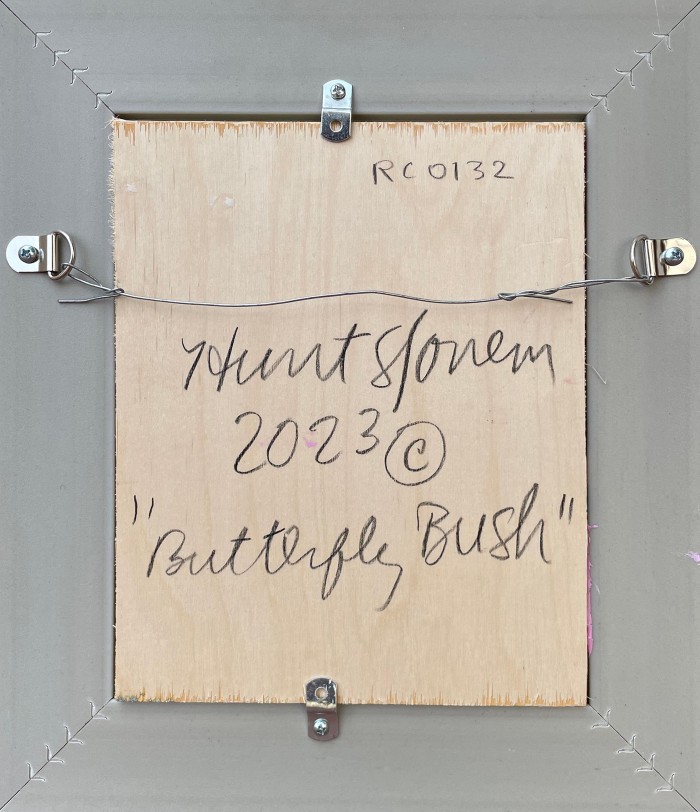 RC0132
Hunt Slonem
2023 ©
"Butterfly Bush"